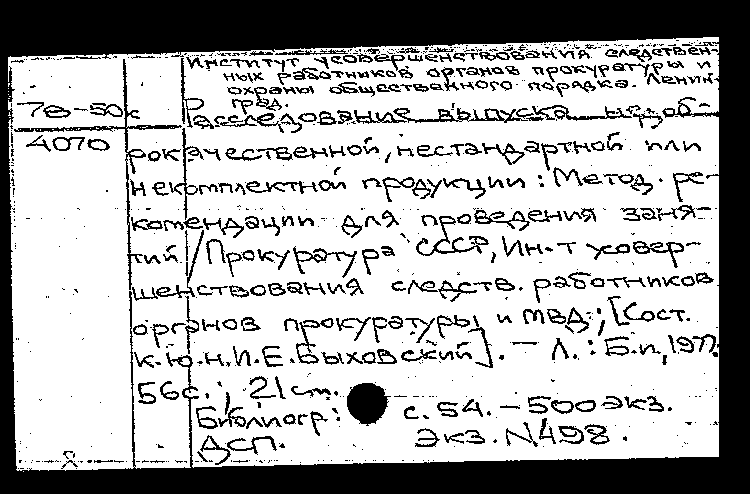 Институт усовершенствования следствен-
ных работников органов прокуратуры и
охраны общественного порядка. Ленин-
град.
78-50к
Расследование выпуска недоб-
4070
рокачественной, нестандартной или
некомплектной продукции: Метод. ре-
комендации для проведения заня-
тий / Прокуратура СССР, Ин-т усовер-
шенствования следств. работников
органов прокуратуры и МВД; [Сост.
к.ю.н. И.Е. Быховский]. — Л.: Б.и, 1977.
56с.; 21 cm.
Библиогр: с. 54. - 500 экз.
ДСП. Экз. N498.